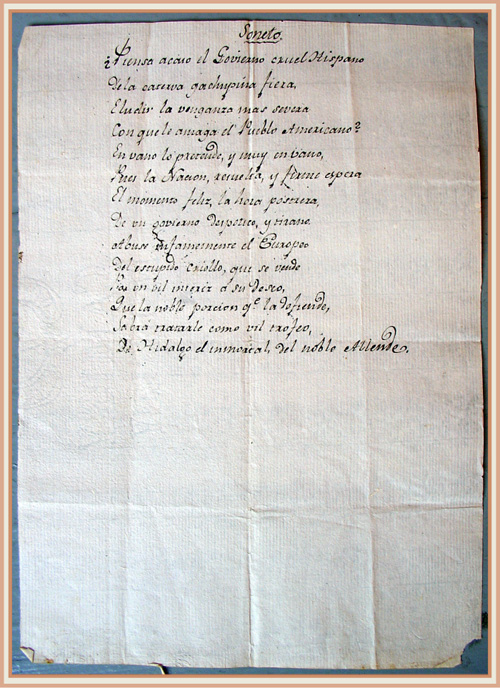 Soneto.
¿Piensa acaso el Govierno cruel Hispano
de la caterva gachupina fiera,
Eludir la venganza mas severa
Con que le amaga el Pueblo Americano?
En vano lo pretende, y muy en vano,
Pues la Nacion, resuelta, y firme espera
El momento feliz, la hora postrera,
De un govierno despotico, y tirano.
Abuse infamemente el Europeo
Del estupido criollo, que se vende
Por un vil interes a su deseo,
Que la noble porcion qe. la defiende,
Sabrá tratarle como vil trofeo,
De Hidalgo el inmortal, del noble Allende.